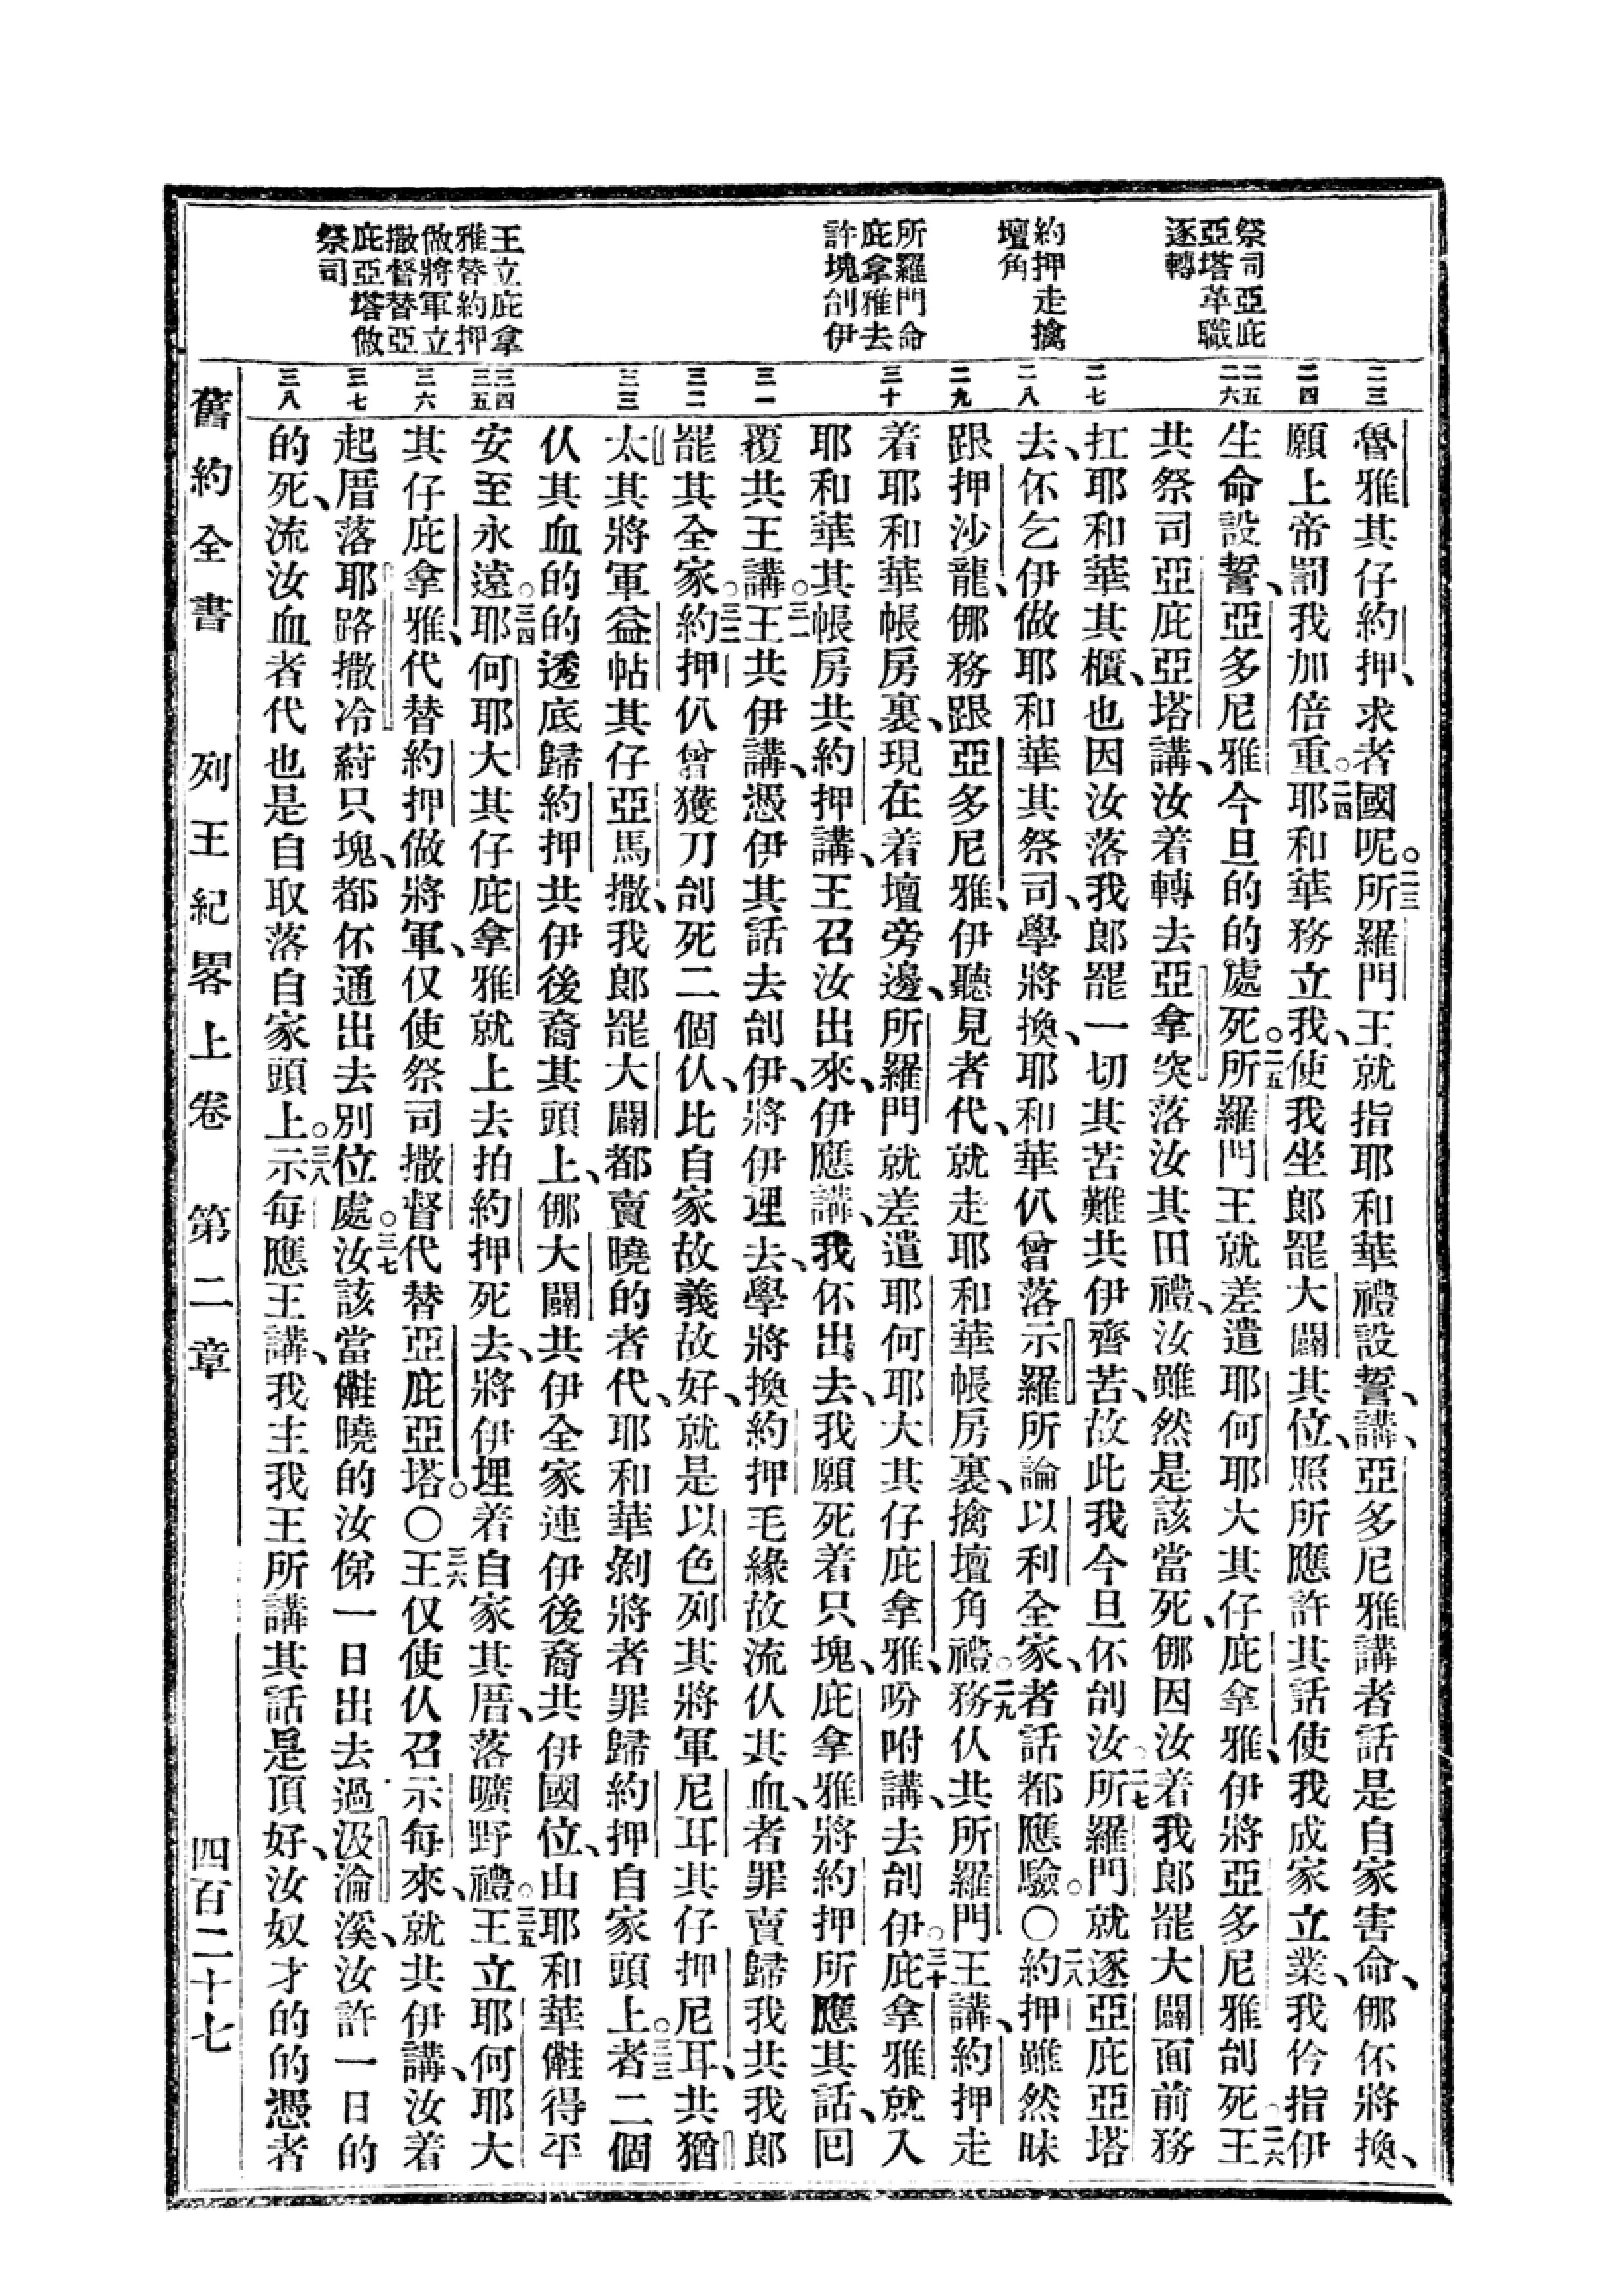 祭司亞庇
亞塔革職
逐轉
約押走擒
壇角
所羅門命
庇拿雅去
許塊刣伊
王立庇拿
雅替約押
做將軍立
撒督替亞
庇亞塔做
祭司
二三
二四
二五
二六
二七
二八
二九
三十
三一
三二
三三
三四
三五
三六
三七
三八
魯雅其仔約押、求者國呢。二三所羅門王就指耶和華禮設誓、講、亞多尼雅講者話是自家害命、哪伓將換、
願上帝罰我加倍重。二四耶和華務立我、使我坐郎罷大闢其位、照所應許其話使我成家立業、我仱指伊
生命設誓、亞多尼雅今旦的的處死。二五所羅門王就差遣耶何耶大其仔庇拿雅、伊將亞多尼雅刣死。二六王
共祭司亞庇亞塔講、汝着轉去亞拿突落汝其田禮、汝雖然是該當死、哪因汝着我郎罷大闢面前務
扛耶和華其櫃、也因汝落我郎罷一切其苦難共伊齊苦、故此我今旦伓刣汝。二七所羅門就逐亞庇亞塔
去、伓乞伊做耶和華其祭司、學將換、耶和華仈曾落示羅所論以利全家、者話都應驗。〇二八約押雖然昧
跟押沙龍、哪務跟亞多尼雅、伊聽見者代、就走耶和華帳房裏、擒壇角禮。二九務仈共所羅門王講、約押走
着耶和華帳房裏、現在着壇旁邊、所羅門就差遣耶何耶大其仔庇拿雅、吩咐講、去刣伊。三十庇拿雅就入
耶和華其帳房共約押講、王召汝出來、伊應講、我伓出去、我願死着只塊、庇拿雅將約押所應其話、回
覆共王講。三一王共伊講、憑伊其話去刣伊、將伊埋去、學將換約押毛緣故流仈其血、者罪賣歸我共我郎
罷其全家。三二約押仈曾獲刀刣死二個仈、比自家故義故好、就是以色列其將軍尼耳其仔押尼耳、共猶
太其將軍益帖其仔亞馬撒、我郎罷大闢都賣曉的者代、耶和華剝將者罪歸約押自家頭上。三三者二個
仈其血的的透底歸約押共伊後裔其頭上、哪大闢共伊全家連伊後裔共伊國位、由耶和華㒕得平
安至永遠。三四耶何耶大其仔庇拿雅就上去拍約押死去、將伊埋着自家其厝、落曠野禮。三五王立耶何耶大
其仔庇拿雅、代替約押做將軍、仅使祭司撒督代替亞庇亞塔。〇三六王仅使仈召示每來、就共伊講、汝着
起厝落耶路撒冷蒔只塊、都伓通出去別位處。三七汝該當㒕曉的汝俤一日出去過汲淪溪、汝許一日的
的死、流汝血者代也是自取落自家頭上。三八示每應王講、我主我王所講其話是頂好、汝奴才的的憑者
舊約全書　列王紀畧上卷　第二章　四百二十七